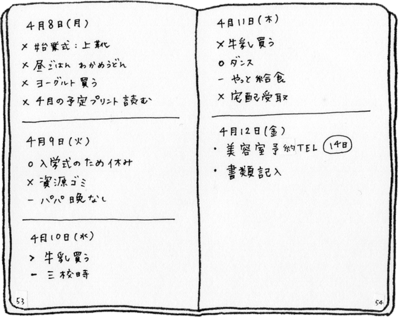 4月8日(月)
× 始業式:上靴
× 昼ごはん わかめうどん
× ヨーグルト買う
× 4月の予定プリント読む
4月9日(火)
o 入学式のため休み
× 資源ゴミ
- パパ晩なし
4月10日(水)
> 牛乳買う
- 三校時
53
4月11日(木)
× 牛乳買う
o ダンス
- やっと給食
× 宅配受取
4月12日(金)
・ 美容室予約TEL 14日
・ 書類記入
54